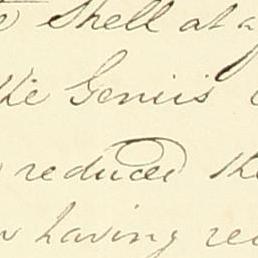 Shell at a
the Geniis
reduced the
having rec